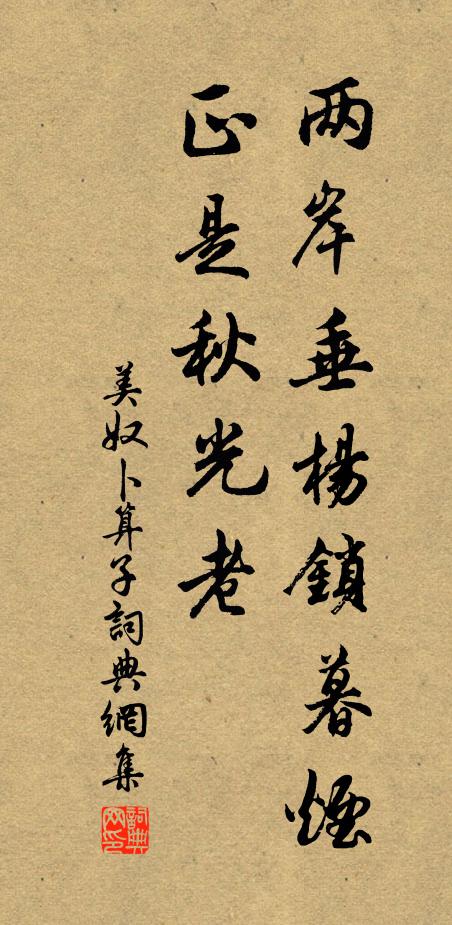 两岸垂楊鎖暮煙
正是秋光老
美奴卜算子詞典網集
詞典网印